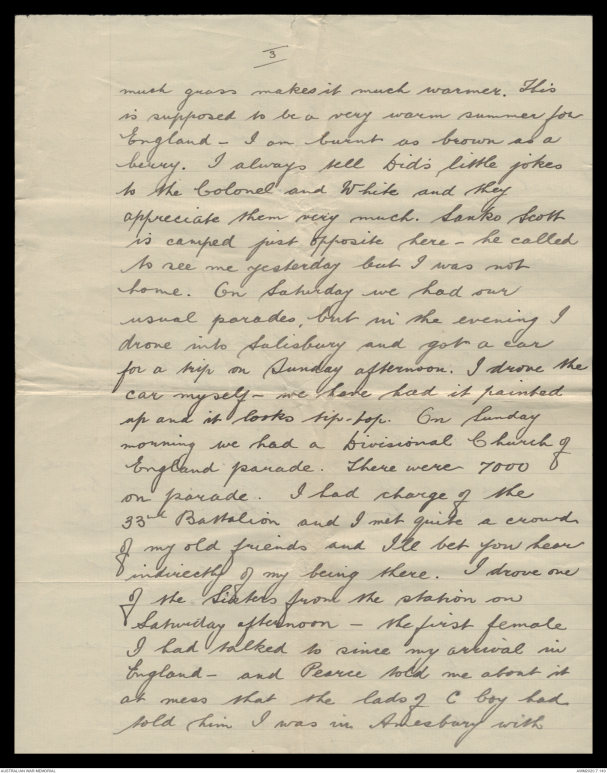 3
much grass makes it much warmer. This
is supposed to be a very warm summer for
England - I am burnt as brown as a
berry. I always tell Did's little jokes
to the Colonel and White and they
appreciate them very much. Sanko Scott
is camped just opposite here - he called
to see me yesterday but I was not
home. On Saturday we had our
usual parades, but in the evening I
drove into Salisbury and got a car
for a trip on Sunday afternoon. I drove the
car myself - we have had it painted
up and it looks tip-top. On Sunday
morning we had a Divisional Church of
England parade. There were 7000
on parade. I had charge of the
33rd Battalion and I met quite a crowd
of my old friends and I'll bet you hear
indirectly of my being there. I drove one
of the Sisters from the station on
Saturday afternoon - the first female
I had talked to since my arrival in
England - and Pearce told me about it
at mess that the lads of C Coy had
told him I was in Amesbury with
AUSTRALIAN WAR MEMORIAL